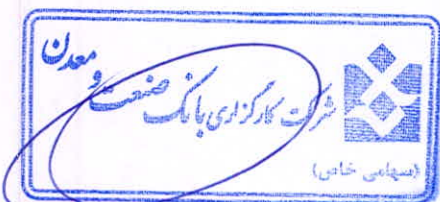 شرکت کارگزاری بانک صنعت و معدن
(سهامی خاص)